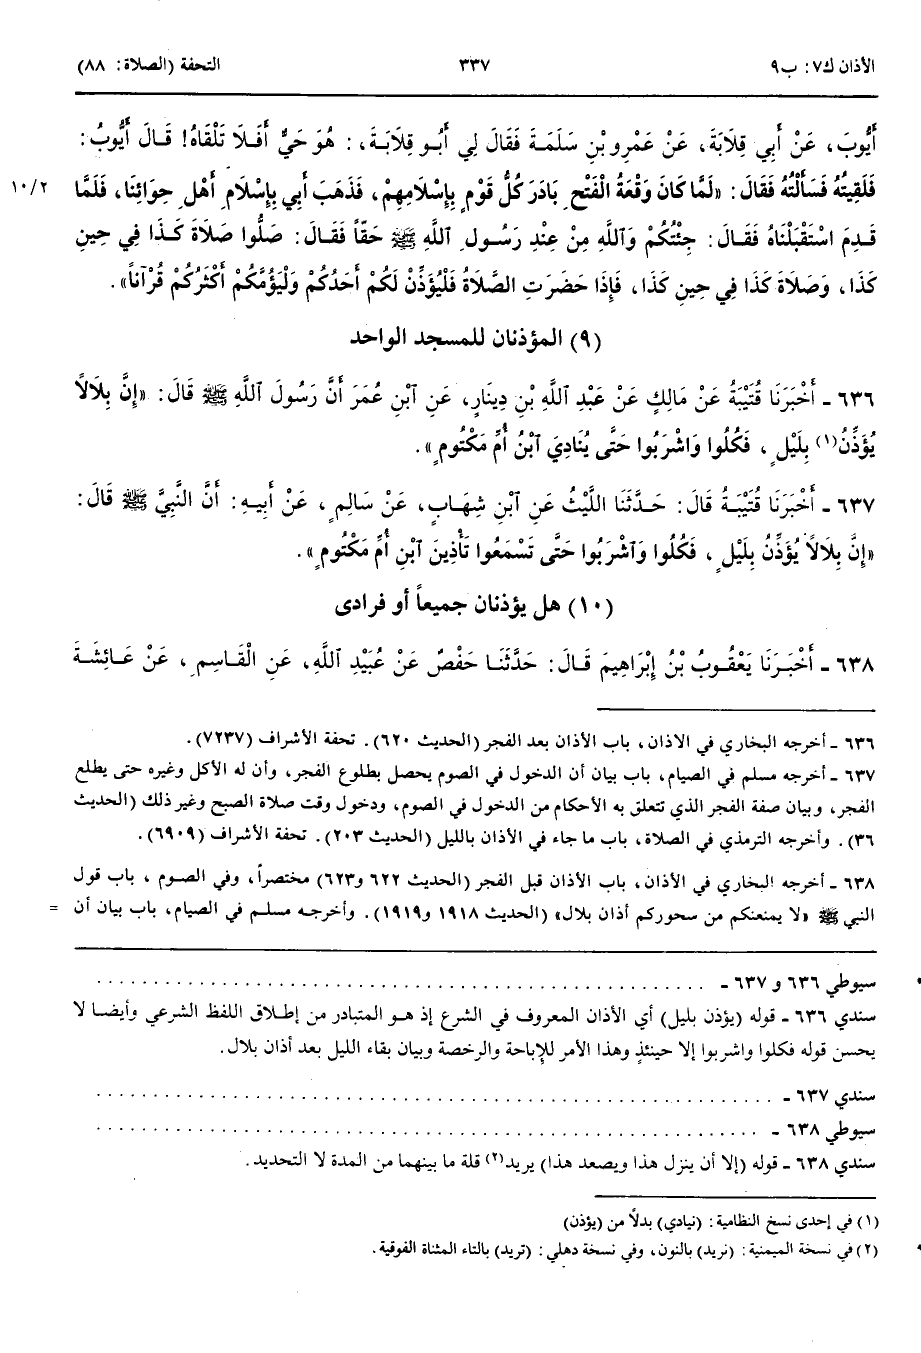 الأذان ك٧: ب٩ ٣٣٧ التحفة (الصلاة: ٨٨)
أَيُّوبَ، عَنْ أَبِي قِلَابَةَ، عَنْ عَمْرِو بْنِ سَلَمَةَ فَقَالَ لِي أَبُو قِلَابَةَ، : هُوَ حَيٌّ أَفَلَا تَلْقَاهُ! قَالَ أَيُّوبُ:
فَلَقِيتُهُ فَسَأَلْتُهُ فَقَالَ: «لَمَّا كَانَ وَقْعَةُ الْفَتْحِ بَادَرَ كُلُّ قَوْمٍ بِإِسْلَامِهِمْ، فَذَهَبَ أَبِي بِإِسْلَامِ أَهْلِ حِوَائِنَا، فَلَمَّا ١٠/٢
قَدِمَ اسْتَقْبَلْنَاهُ فَقَالَ: جِئْتُكُمْ وَٱللَّهِ مِنْ عِنْدِ رَسُولِ ٱللَّهِ ﷺ حَقّاً فَقَالَ: صَلُّوا صَلَاةَ كَذَا فِي حِينِ
كَذَا، وَصَلَاةَ كَذَا فِي حِينِ كَذَا، فَإِذَا حَضَرَتِ الصَّلَاةُ فَلْيُؤَذِّنْ لَكُمْ أَحَدُكُمْ وَلْيَؤُمَّكُمْ أَكْثَرُكُمْ قُرْآناً».
(٩) المؤذنان للمسجد الواحد
٦٣٦ - أَخْبَرَنَا قُتَيْبَةُ عَنْ مَالِكٍ عَنْ عَبْدِ ٱللَّهِ بْنِ دِينَارٍ، عَنِ ٱبْنِ عُمَرَ أَنَّ رَسُولَ ٱللَّهِ ﷺ قَالَ: «إِنَّ بِلَالاً
يُؤَذِّنُ(١) بِلَيْلٍ، فَكُلُوا وَاشْرَبُوا حَتَّى يُنَادِيَ ٱبْنُ أُمِّ مَكْتُومٍ».
٦٣٧ - أَخْبَرَنَا قُتَيْبَةُ قَالَ: حَدَّثَنَا اللَّيْثُ عَنِ ٱبْنِ شِهَابٍ، عَنْ سَالِمٍ، عَنْ أَبِيهِ: أَنَّ النَّبِيَّ ﷺ قَالَ:
«إِنَّ بِلَالاً يُؤَذِّنُ بِلَيْلٍ، فَكُلُوا وَٱشْرَبُوا حَتَّى تَسْمَعُوا تَأْذِينَ ٱبْنِ أُمِّ مَكْتُومٍ».
(١٠) هل يؤذنان جميعاً أو فرادى
٦٣٨ - أَخْبَرَنَا يَعْقُوبُ بْنُ إِبْرَاهِيمَ قَالَ: حَدَّثَنَا حَفْصٌ عَنْ عُبَيْدِ ٱللَّهِ، عَنِ الْقَاسِمِ، عَنْ عَائِشَةَ
٦٣٦ - أخرجه البخاري في الاذان، باب الأذان بعد الفجر (الحديث ٦٢٠). تحفة الأشراف (٧٢٣٧).
٦٣٧ - أخرجه مسلم في الصيام، باب بيان أن الدخول في الصوم يحصل بطلوع الفجر، وأن له الأكل وغيره حتى يطلع
الفجر، وبيان صفة الفجر الذي تتعلق به الأحكام من الدخول في الصوم، ودخول وقت صلاة الصبح وغير ذلك (الحديث
٣٦). وأخرجه الترمذي في الصلاة، باب ما جاء في الأذان بالليل (الحديث ٢٠٣). تحفة الأشراف (٦٩٠٩).
٦٣٨ - أخرجه البخاري في الأذان، باب الأذان قبل الفجر (الحديث ٦٢٢ و٦٢٣) مختصراً، وفي الصوم، باب قول
النبي ﷺ «لا يمنعنكم من سحوركم أذان بلال» (الحديث ١٩١٨ و١٩١٩). وأخرجه مسلم في الصيام، باب بيان أن =
سيوطي ٦٣٦ و ٦٣٧ - . . . . . . . . . . . . . . . . . . . .
سندي ٦٣٦ - قوله (يؤذن بليل) أي الأذان المعروف في الشرع إذ هو المتبادر من إطلاق اللفظ الشرعي وأيضا لا
يحسن قوله فكلوا واشربوا إلا حينئذٍ وهذا الأمر للإباحة والرخصة وبيان بقاء الليل بعد أذان بلال.
سندي ٦٣٧ - . . . . . . . . . . . . . . . . . . . .
سيوطي ٦٣٨ - . . . . . . . . . . . . . . . . . . . .
سندي ٦٣٨ - قوله (إلا أن ينزل هذا ويصعد هذا) يريد(٢) قلة ما بينهما من المدة لا التحديد.
(١) في إحدى نسخ النظامية: (نيادي) بدلاً من (يؤذن)
(٢) في نسخة الميمنية: (نريد) بالنون، وفي نسخة دهلي: (تريد) بالتاء المثناة الفوقية.